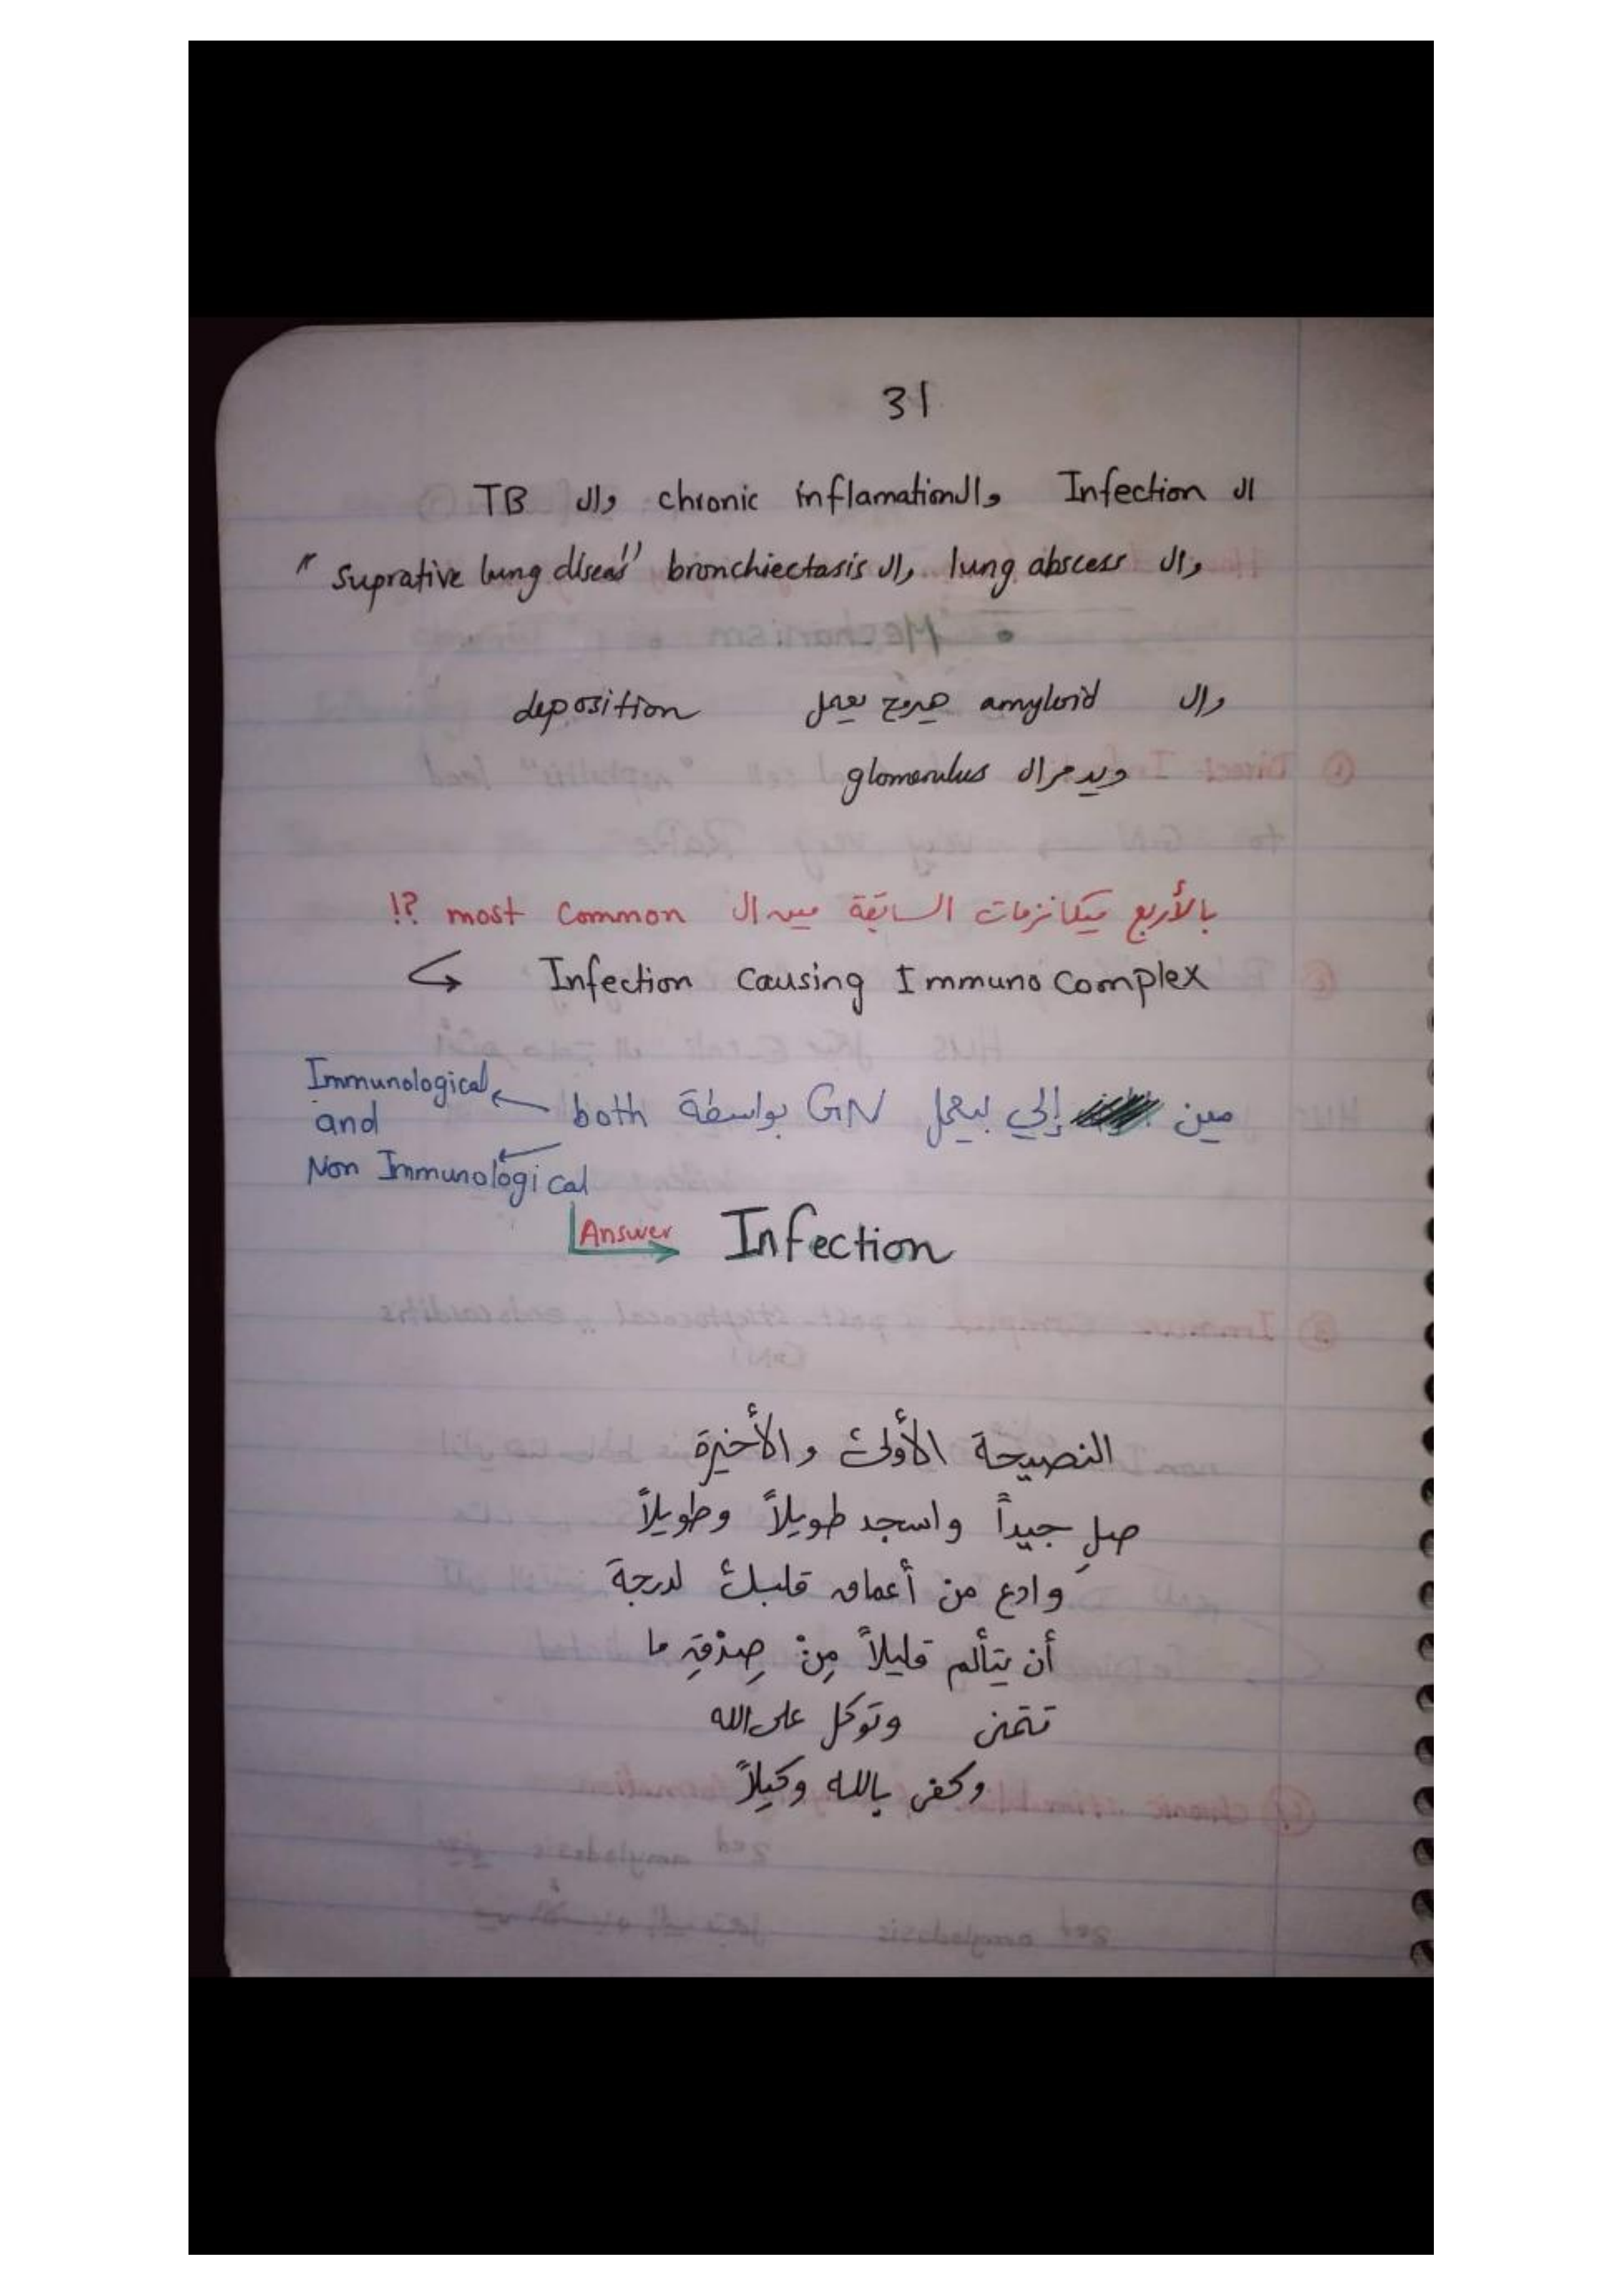 31
ال Infection والـ chronic inflamation وال TB
وال lung abscess وال bronchiectasis "Suprative lung diseas"
وال amyloid هيروح يعمل deposition
ويدمر ال glomerulus
بالأربع ميكانزمات السابقة مين ال most common ?!
↳ Infection causing Immuno complex
مين إلي بيعمل GN بواسطة both
Immunological
and
Non Immunological
Answer Infection
النصيحة الأولى والأخيرة
صلِ جيداً واسجد طويلاً وطويلاً
وادع من أعماق قلبك لدرجة
أن يتألم قليلاً مِنْ صِدْقِ ما
تتمنى وتوكل على الله
وكفى بالله وكيلاً